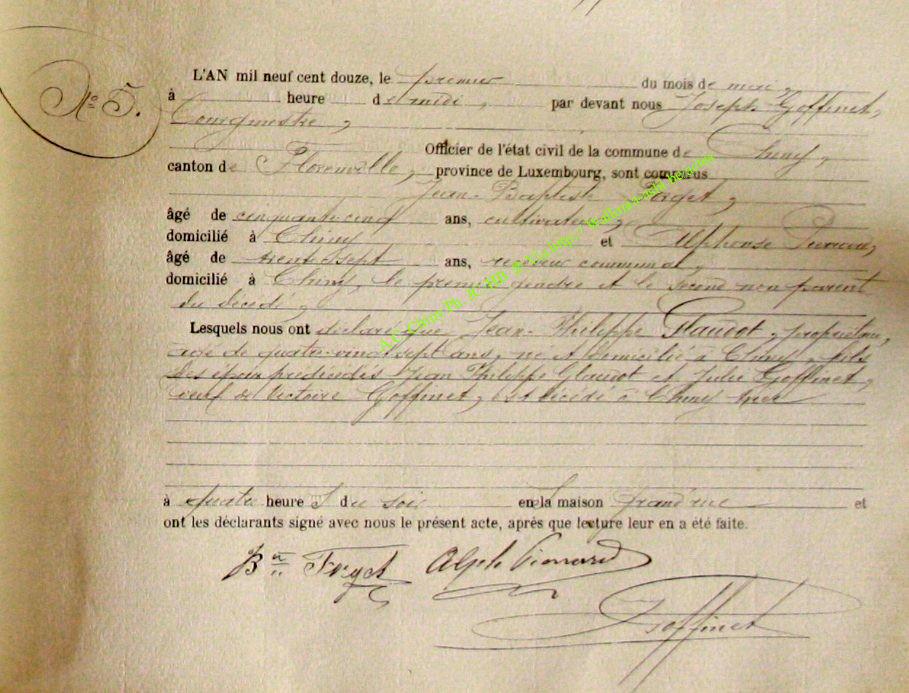 N° 5.
L'AN mil neuf cent douze, le premier du mois de mai,
à heure de midi, par devant nous Joseph Goffinet,
Bourgmestre,
Officier de l'état civil de la commune de Chiny,
canton de Florenville, province de Luxembourg, sont comparus
Jean-Baptiste
âgé de cinquante cinq ans, cultivateur,
domicilié à Chiny et Alphonse
âgé de trente sept ans, receveur communal,
domicilié à Chiny, le premier gendre et le second non parent
du décédé,
Lesquels nous ont déclaré que Jean-Philippe Glaudot, propriétaire,
âgé de quatre vingt sept ans, né et domicilié à Chiny, fils
des époux prédécédés Jean Philippe Glaudot et Julie Goffinet,
veuf de Victoire Goffinet, est décédé à Chiny hier
à quatre heures du soir en la maison Grand'rue et
ont les déclarants signé avec nous le présent acte, après que lecture leur en a été faite.
Goffinet